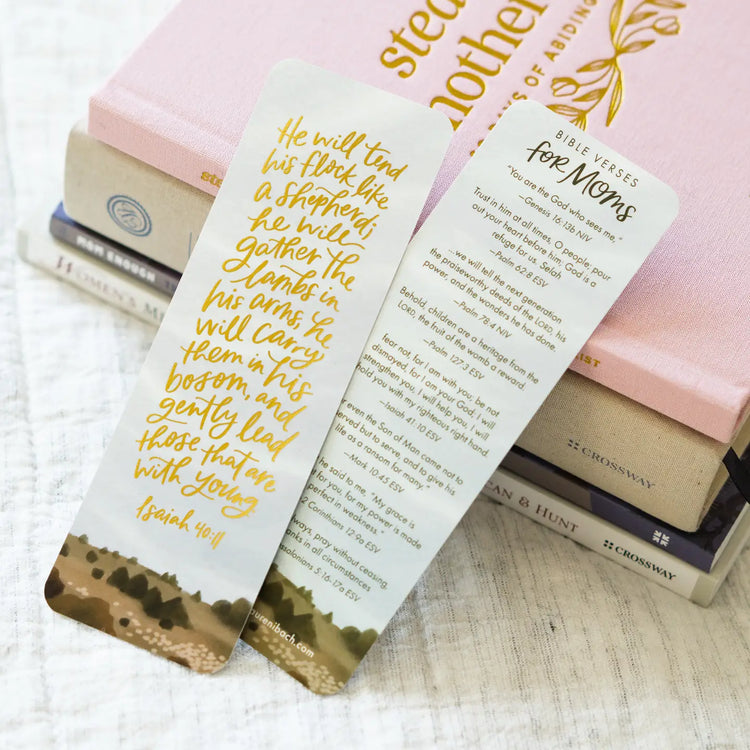 He will tend
his flock like
a shepherd;
he will
gather the
lambs in
his arms, he
will carry
them in his
bosom, and
gently lead
those that are
with young.
Isaiah 40:11
BIBLE VERSES
for Moms
"You are the God who sees me,"
—Genesis 16:13b NIV
Trust in him at all times, O people; pour
out your heart before him; God is a
refuge for us. Selah
—Psalm 62:8 ESV
...we will tell the next generation
the praiseworthy deeds of the LORD, his
power, and the wonders he has done.
—Psalm 78:4 NIV
Behold, children are a heritage from the
LORD, the fruit of the womb a reward.
—Psalm 127:3 ESV
fear not, for I am with you; be not
dismayed, for I am your God; I will
strengthen you, I will help you, I will
hold you with my righteous right hand.
—Isaiah 41:10 ESV
even the Son of Man came not to
served but to serve, and to give his
life as a ransom for many."
—Mark 10:45 ESV
he said to me, "My grace is
for you, for my power is made
perfect in weakness."
2 Corinthians 12:9b ESV
always, pray without ceasing,
thanks in all circumstances
5:16-17a ESV
urenibach.com
stea
mother
S OF ABIDING
MOM ENOUGH
WOMEN'S M
CROSSWAY
EAN & HUNT
CROSSWAY